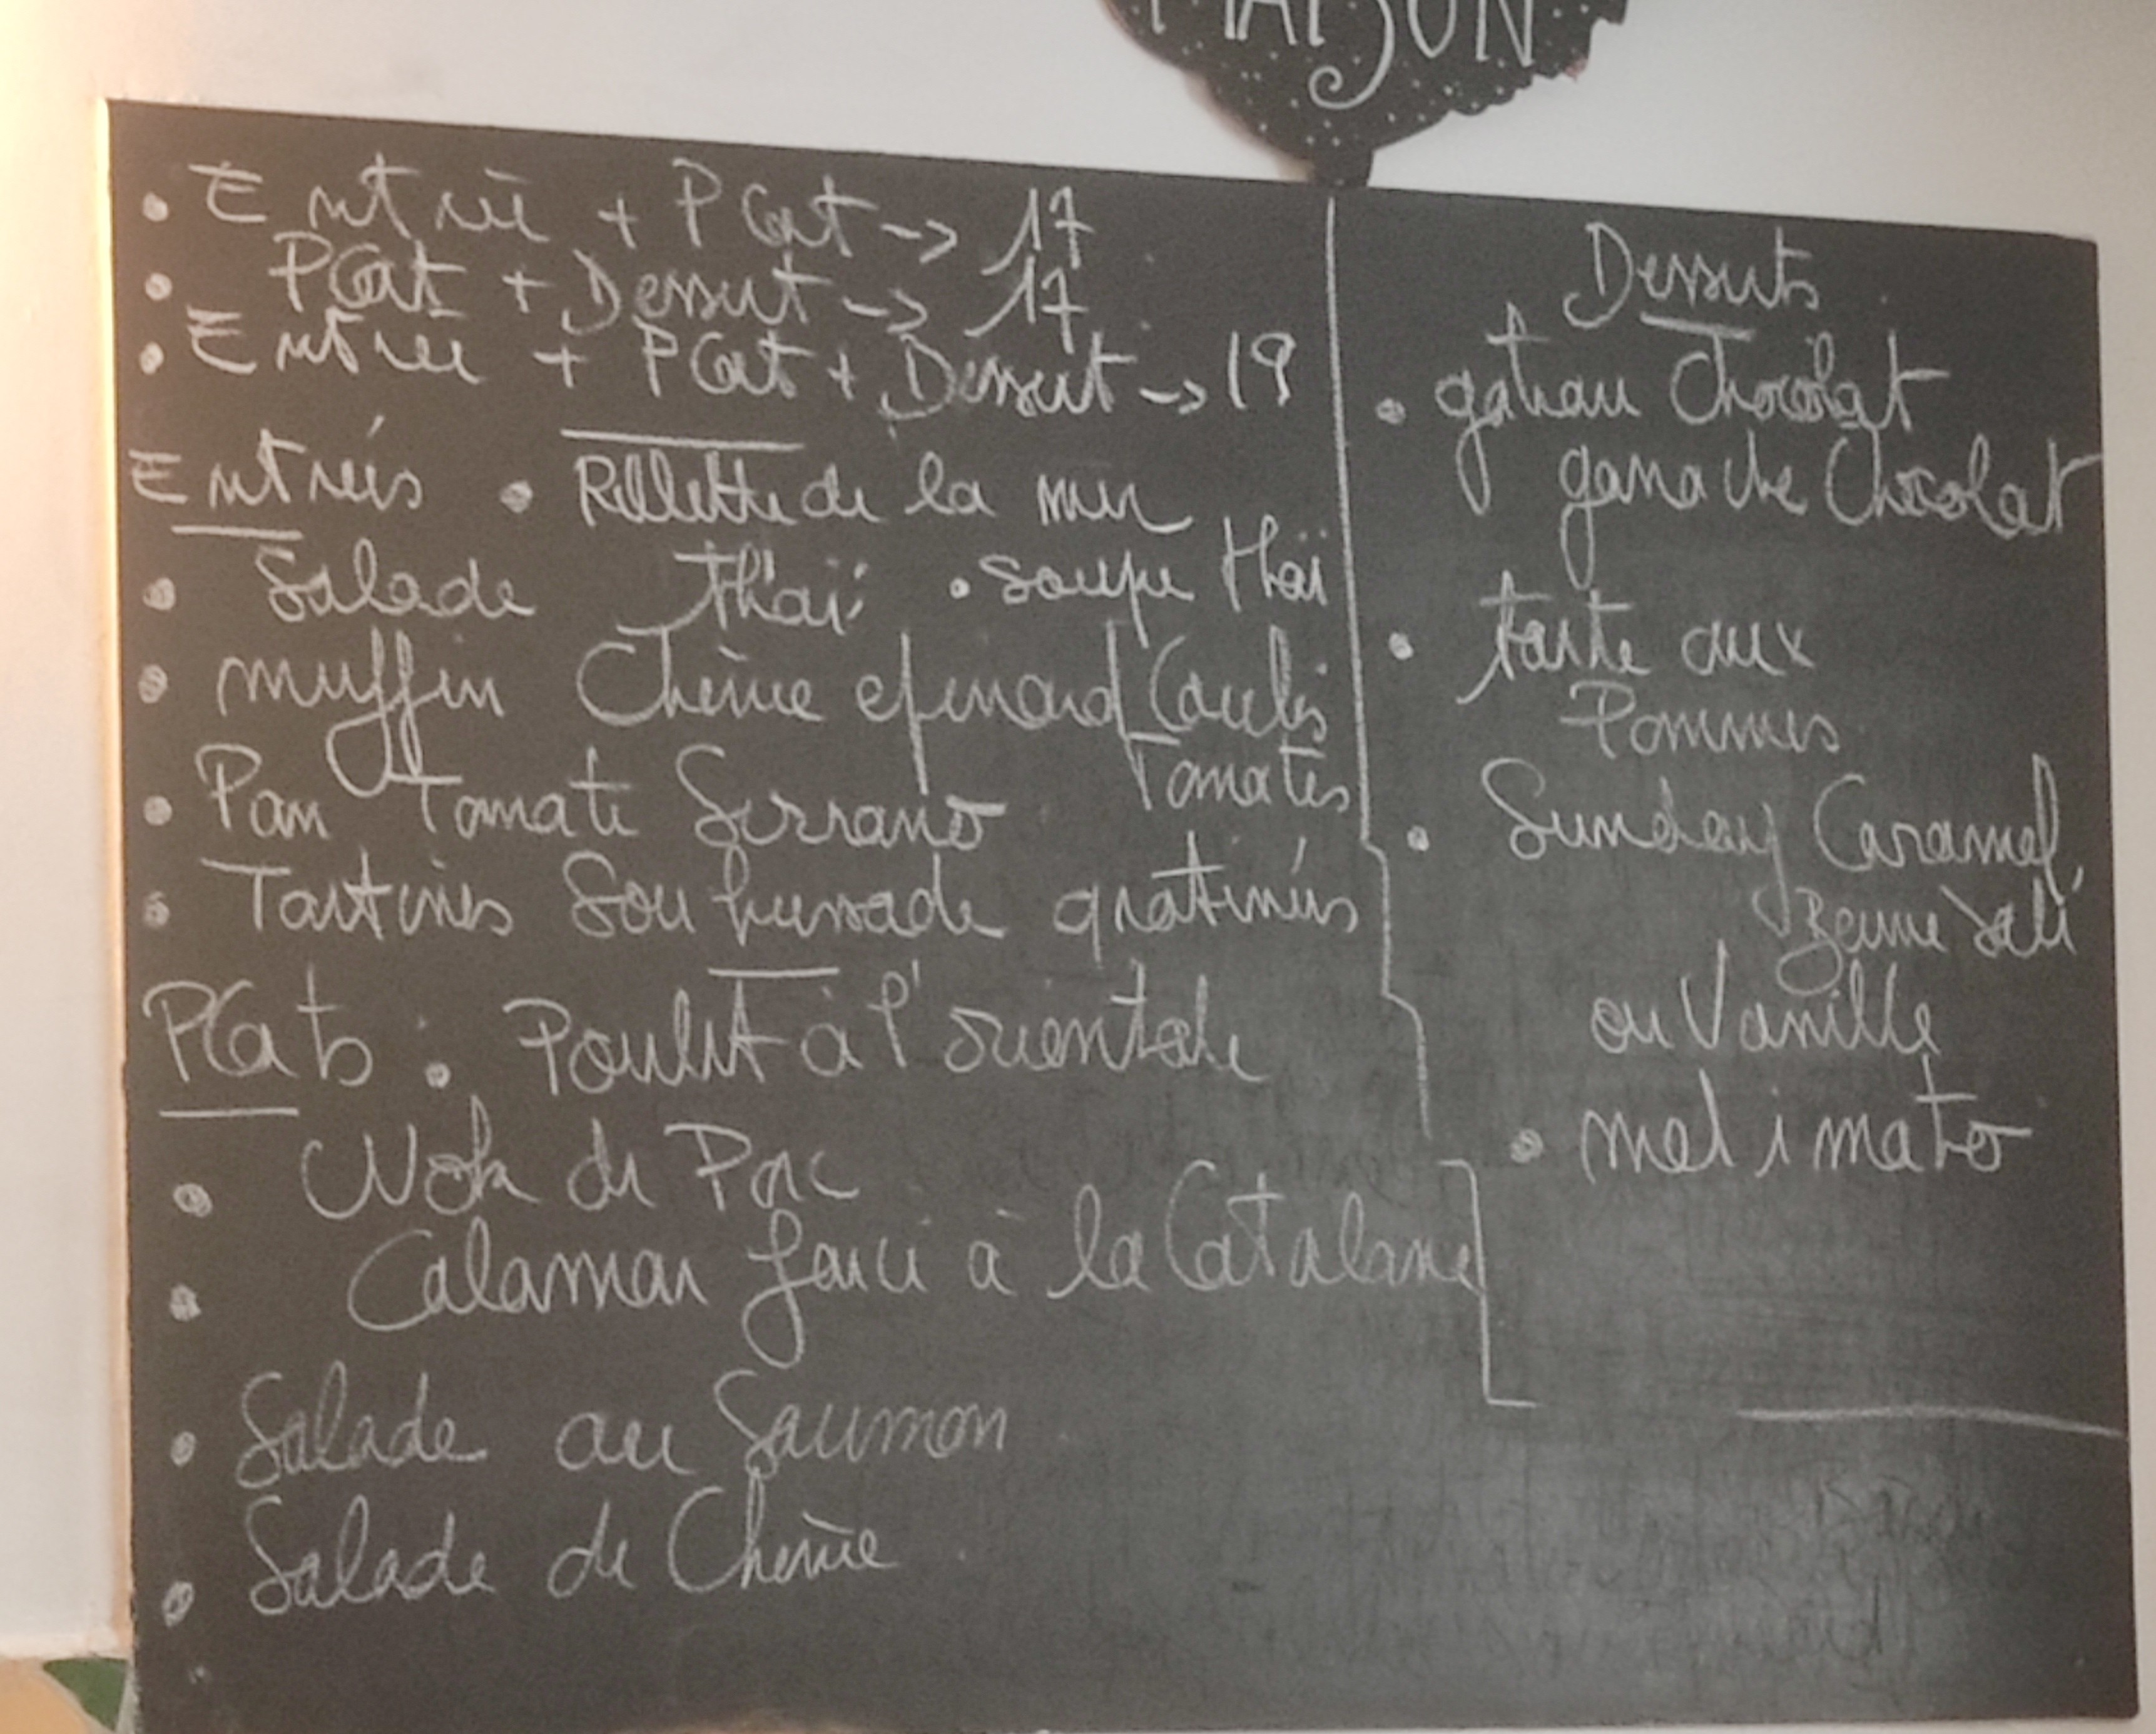 MAISON
• Entrée + Plat -> 17
• Plat + Dessert -> 17
• Entrée + Plat + Dessert -> 19
Entrées • Rillette de la mer
• Salade Thaï • soupe thaï
• muffin Chèvre epinard Coulis
Tomates
• Pan Tomate Serrano
• Tartines Soubressade gratinées
Plats : • Poulet à l'orientale
• Wok de Porc
• Calamar farci à la Catalane
• Salade au Saumon
• Salade de Chèvre
Desserts
• gateau Chocolat
ganache Chocolat
• tarte aux
Pommes
• Sunday Caramel
Beurre Salé
ou Vanille
• mel i mato